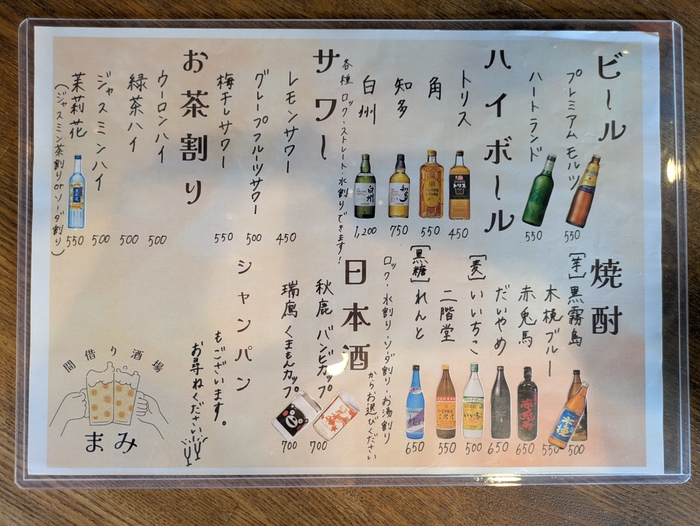 ビール
プレミアムモルツ 550
ハートランド 550
ハイボール
トリス 450
角 550
知多 750
白州 1,200
各種 ロック・ストレート・水割りできます!
サワー
レモンサワー 450
グレープフルーツサワー 500
梅干しサワー 550
お茶割り
ウーロンハイ 500
緑茶ハイ 500
ジャスミンハイ 500
茉莉花 550
(ジャスミン茶割りorソーダ割り)
焼酎
[芋]黒霧島 500
木挽ブルー 550
赤兎馬 650
だいやめ 650
[麦]いいちこ 500
二階堂 550
[黒糖]れんと 650
ロック・水割り・ソーダ割り・お湯割り
からお選びください
日本酒
秋鹿 バンビカップ 700
瑞鷹 くまもんカップ 700
シャンパン
もございます。
お尋ねください
間借り酒場
まみ